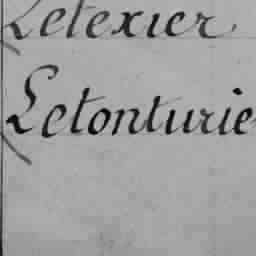 Letexier
Letonturie